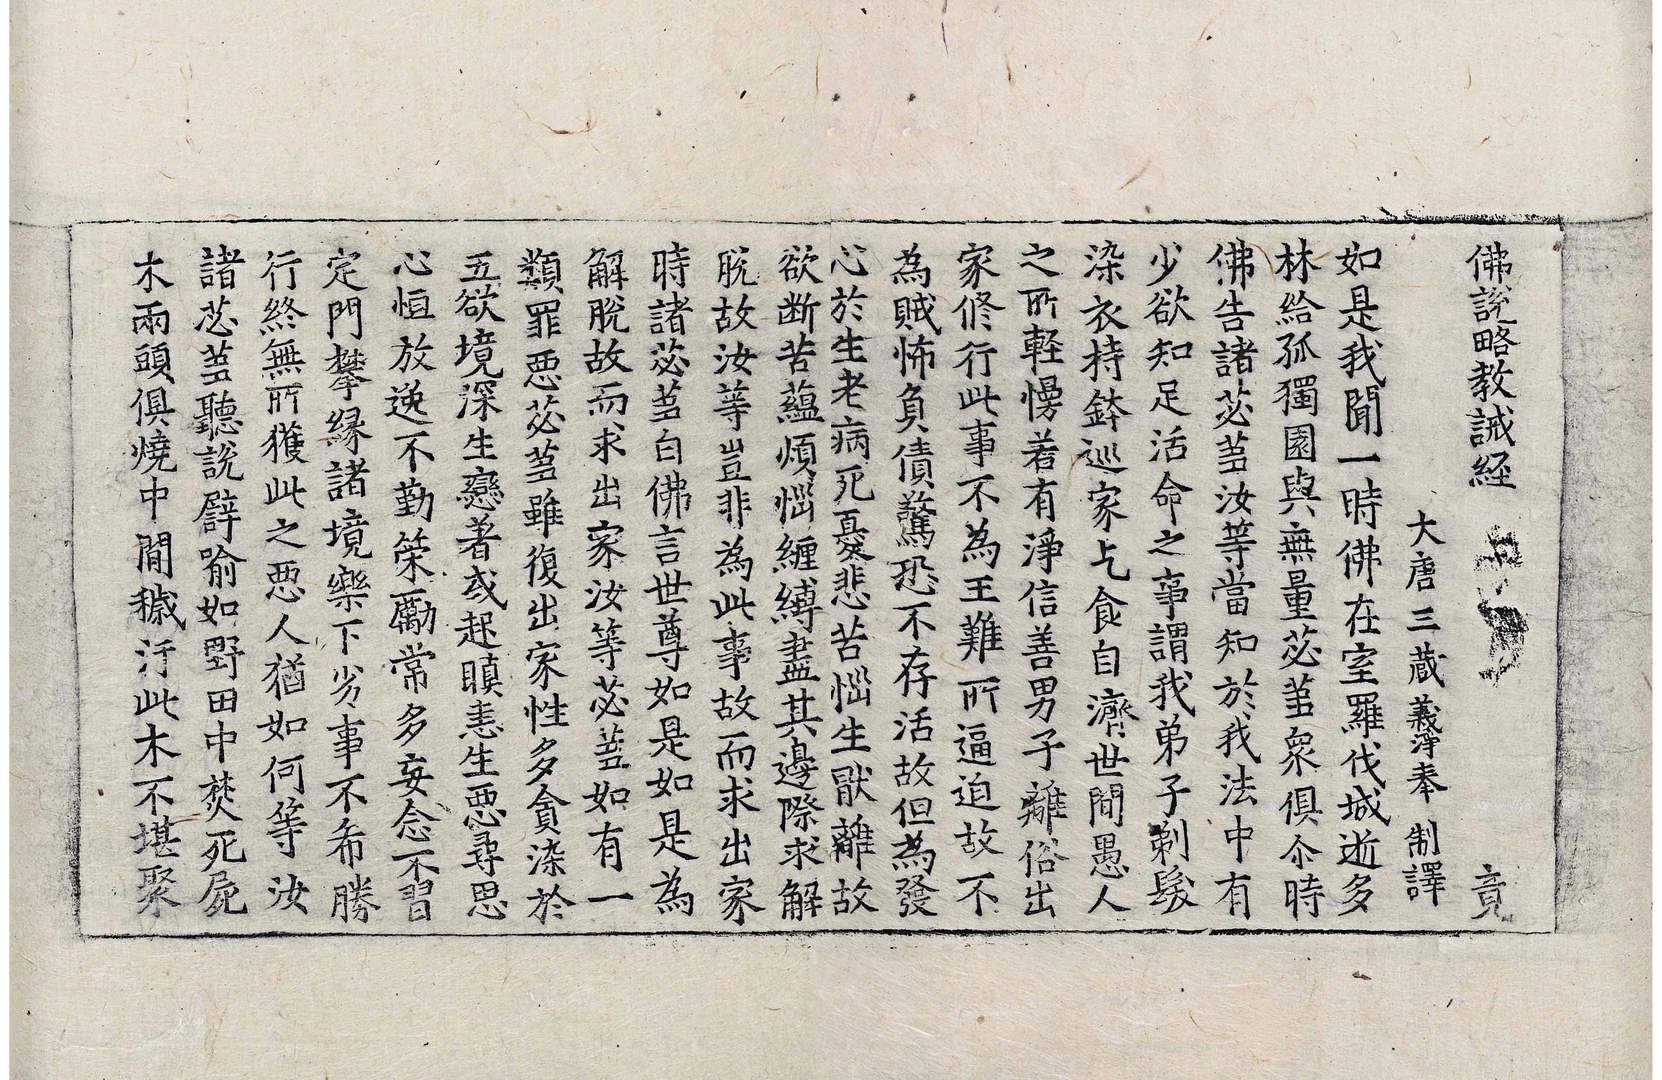 佛說略教誡経 竟
大唐三蔵義淨奉 制譯
如是我聞一時佛在室羅伐城逝多
林給孤獨園與無量苾芻衆俱尒時
佛告諸苾芻汝等當知於我法中有
少欲知足活命之事謂我弟子剃髮
染衣持鉢巡家乞食自濟世間愚人
之所軽慢若有淨信善男子離俗出
家修行此事不為王難所逼迫故不
為賊怖負債驚恐不存活故但為發
心於生老病死憂悲苦惱生猒離故
欲断苦蘊煩惱纏縛盡其邊際求解
脫故汝等豈非為此事故而求出家
時諸苾芻白佛言世尊如是如是為
解脫故而求出家汝等苾芻如有一
類罪惡苾芻雖復出家性多貪染於
五欲境深生戀著或起瞋恚生惡尋思
心恒放逸不勤策勵常多妄念不習
定門攀縁諸境樂下劣事不希勝
行終無所獲此之惡人猶如何等汝
諸苾芻聽說譬喻如野田中焚死屍
木兩頭俱燒中間穢汙此木不堪聚